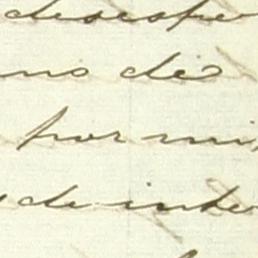 desespe
no de
por mi,
de inte